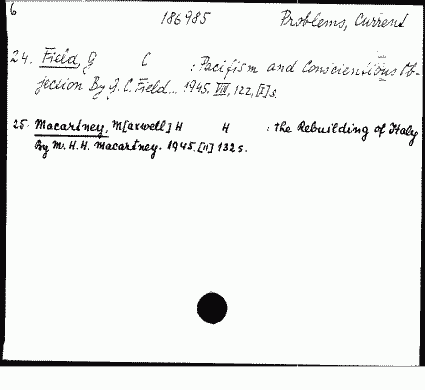 6
186985 Problems, Current
24. Field, G C : Pacifism and Conscientious Ob-
jection By G. C. Field... 1945. VIII, 122, [I] s.
25. Macartney, M[axwell] H H : the Rebuilding of Italy
By M. H. H. Macartney. 1945. [II] 132 s.